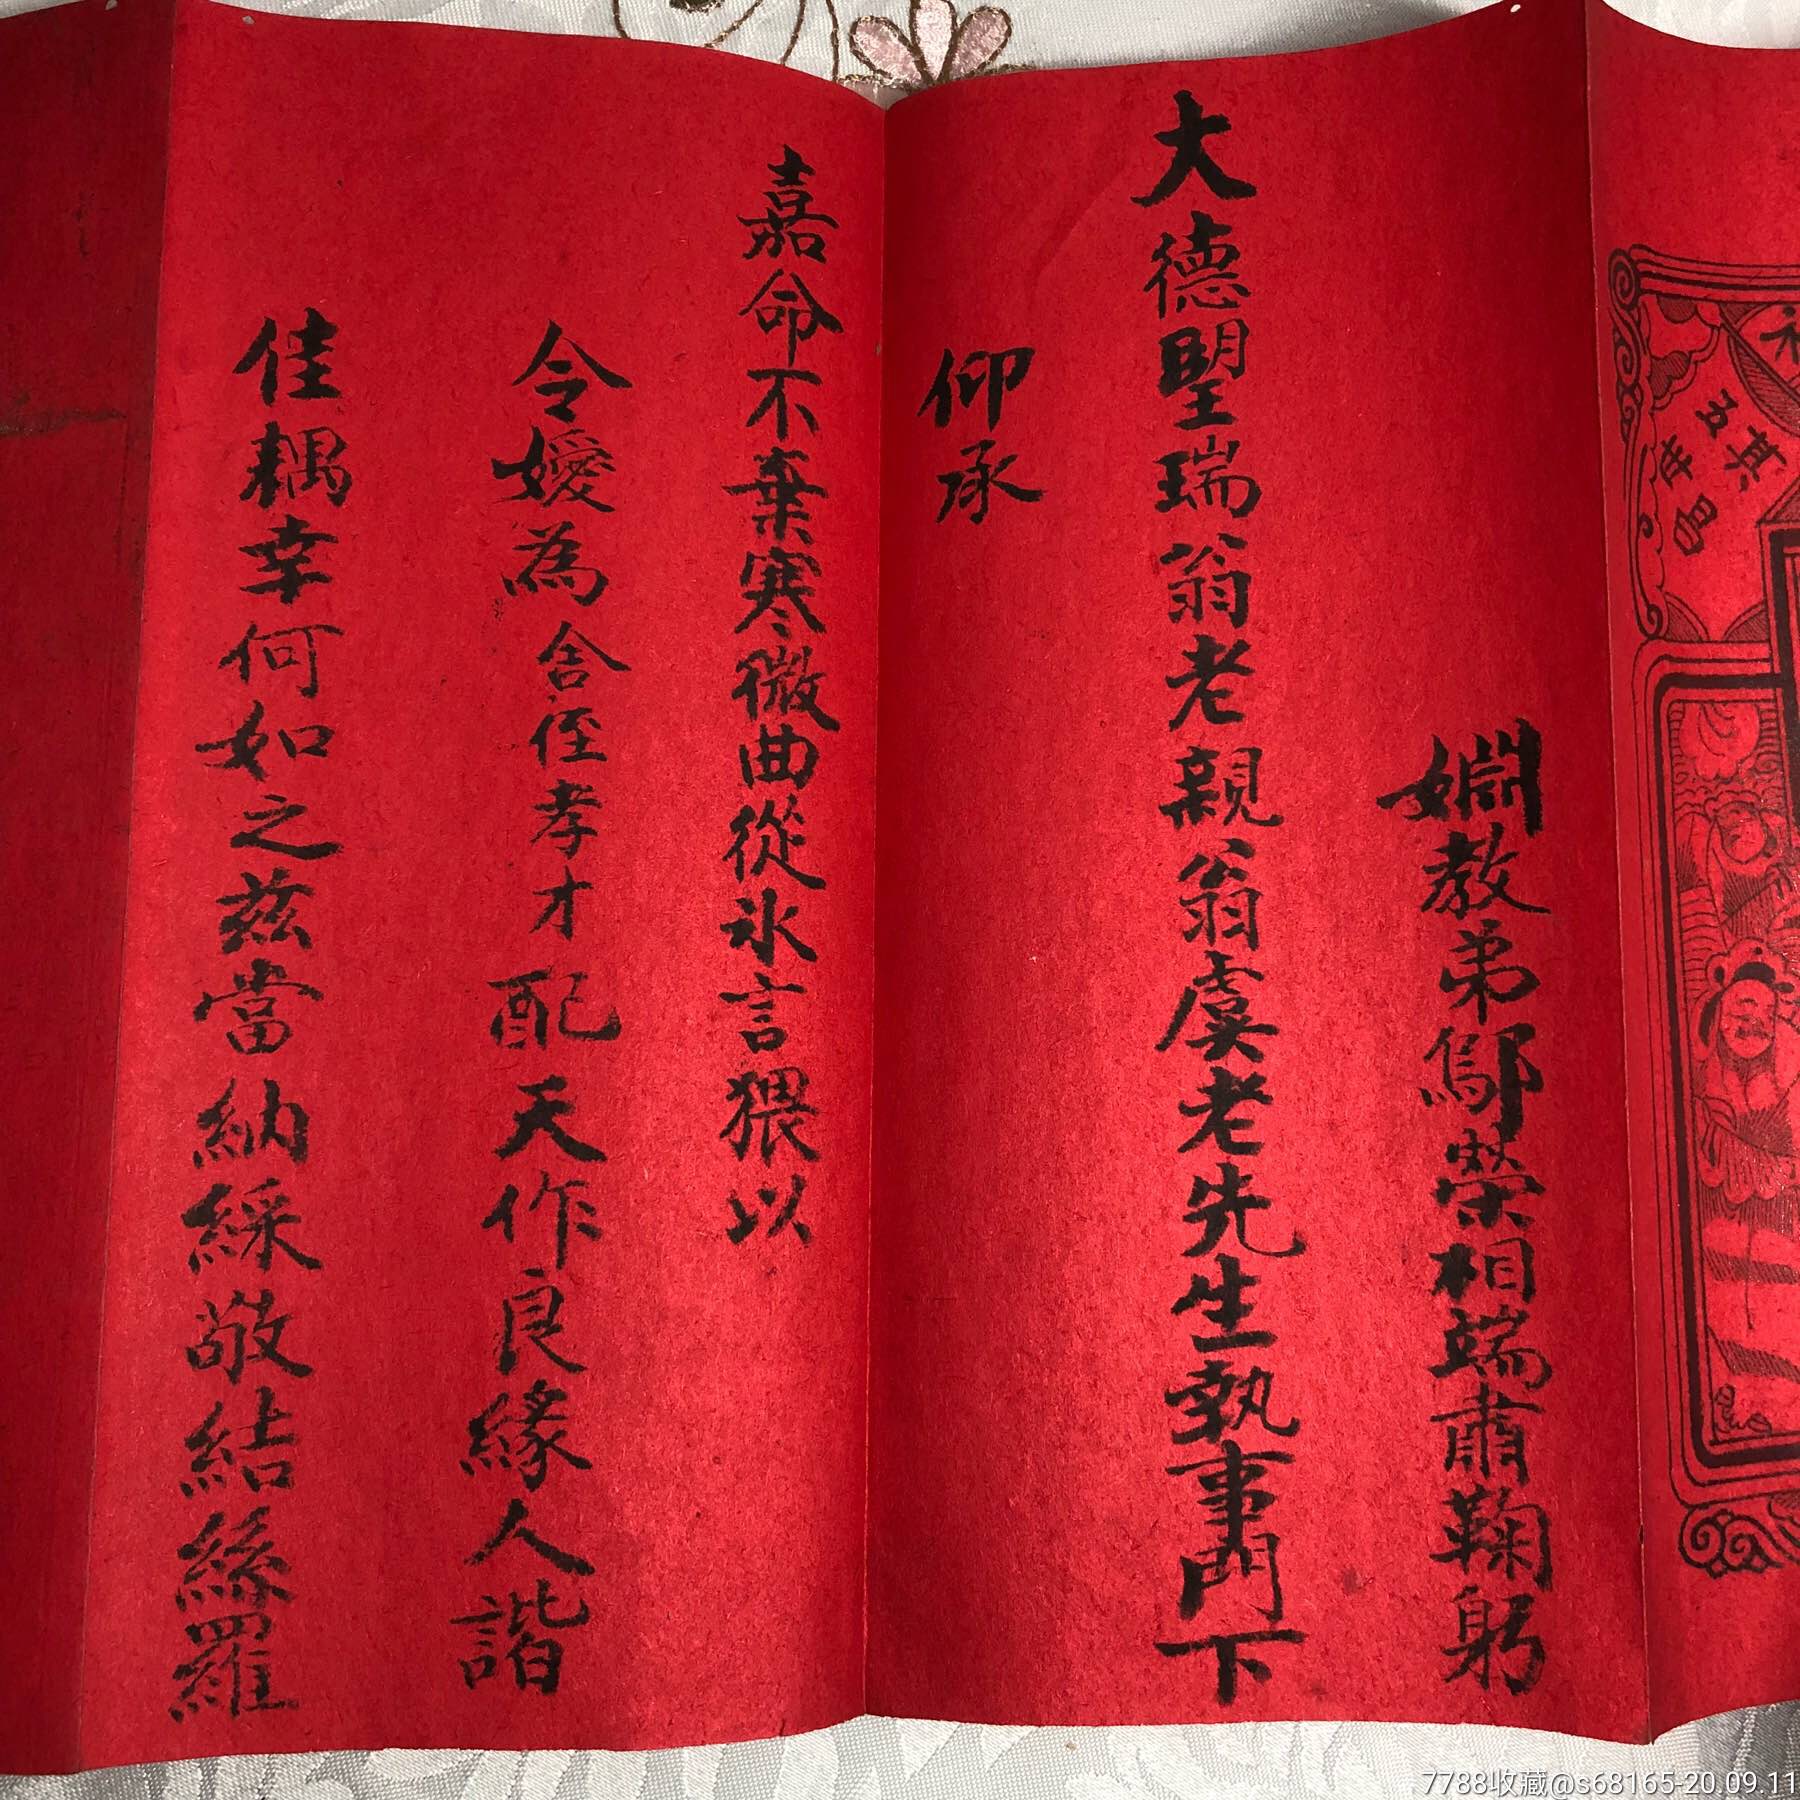 五世其昌
婣教弟鄔榮相端肅鞠躬
大德朢瑞翁老親翁虞老先生執事門下
仰承
嘉命不棄寒微曲從氷言猥以
令嬡為舍侄孝才配天作良緣人諧
佳耦幸何如之茲當納綵敬結絲羅
7788收藏@s68165-20.09.11